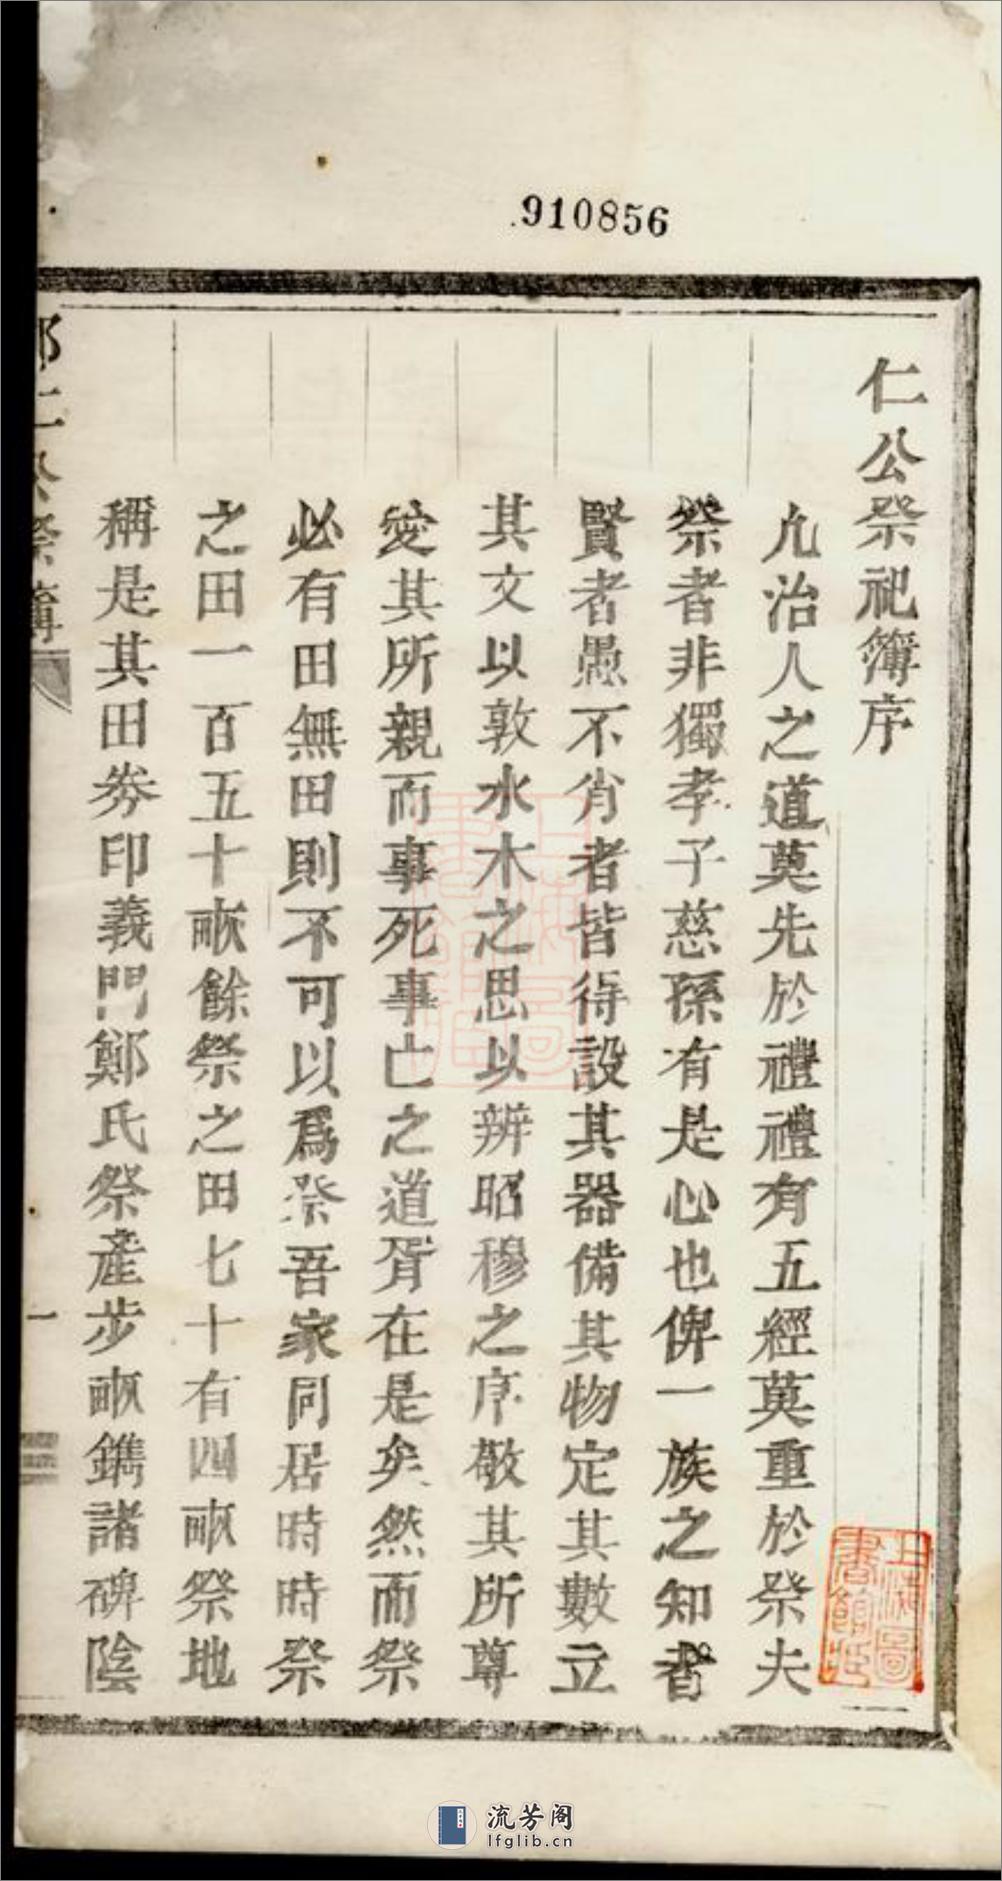 910856
仁公祭祀簿序
凢治人之道莫先於禮禮有五經莫重於祭夫
祭者非獨孝子慈孫有是心也俾一族之知者
賢者愚不肖者皆得設其器備其物定其數立
其文以敦水木之思以辨昭穆之序敬其所尊
愛其所親而事死事亡之道胥在是矣然而祭
必有田無田則不可以爲祭吾家同居時時祭
之田一百五十畝餘祭之田七十有四畝祭地
稱是其田券印義門鄭氏祭產步畝鐫諸碑陰
仁公祭簿
一
上海圖書館藏
流芳阁
lfglib.cn